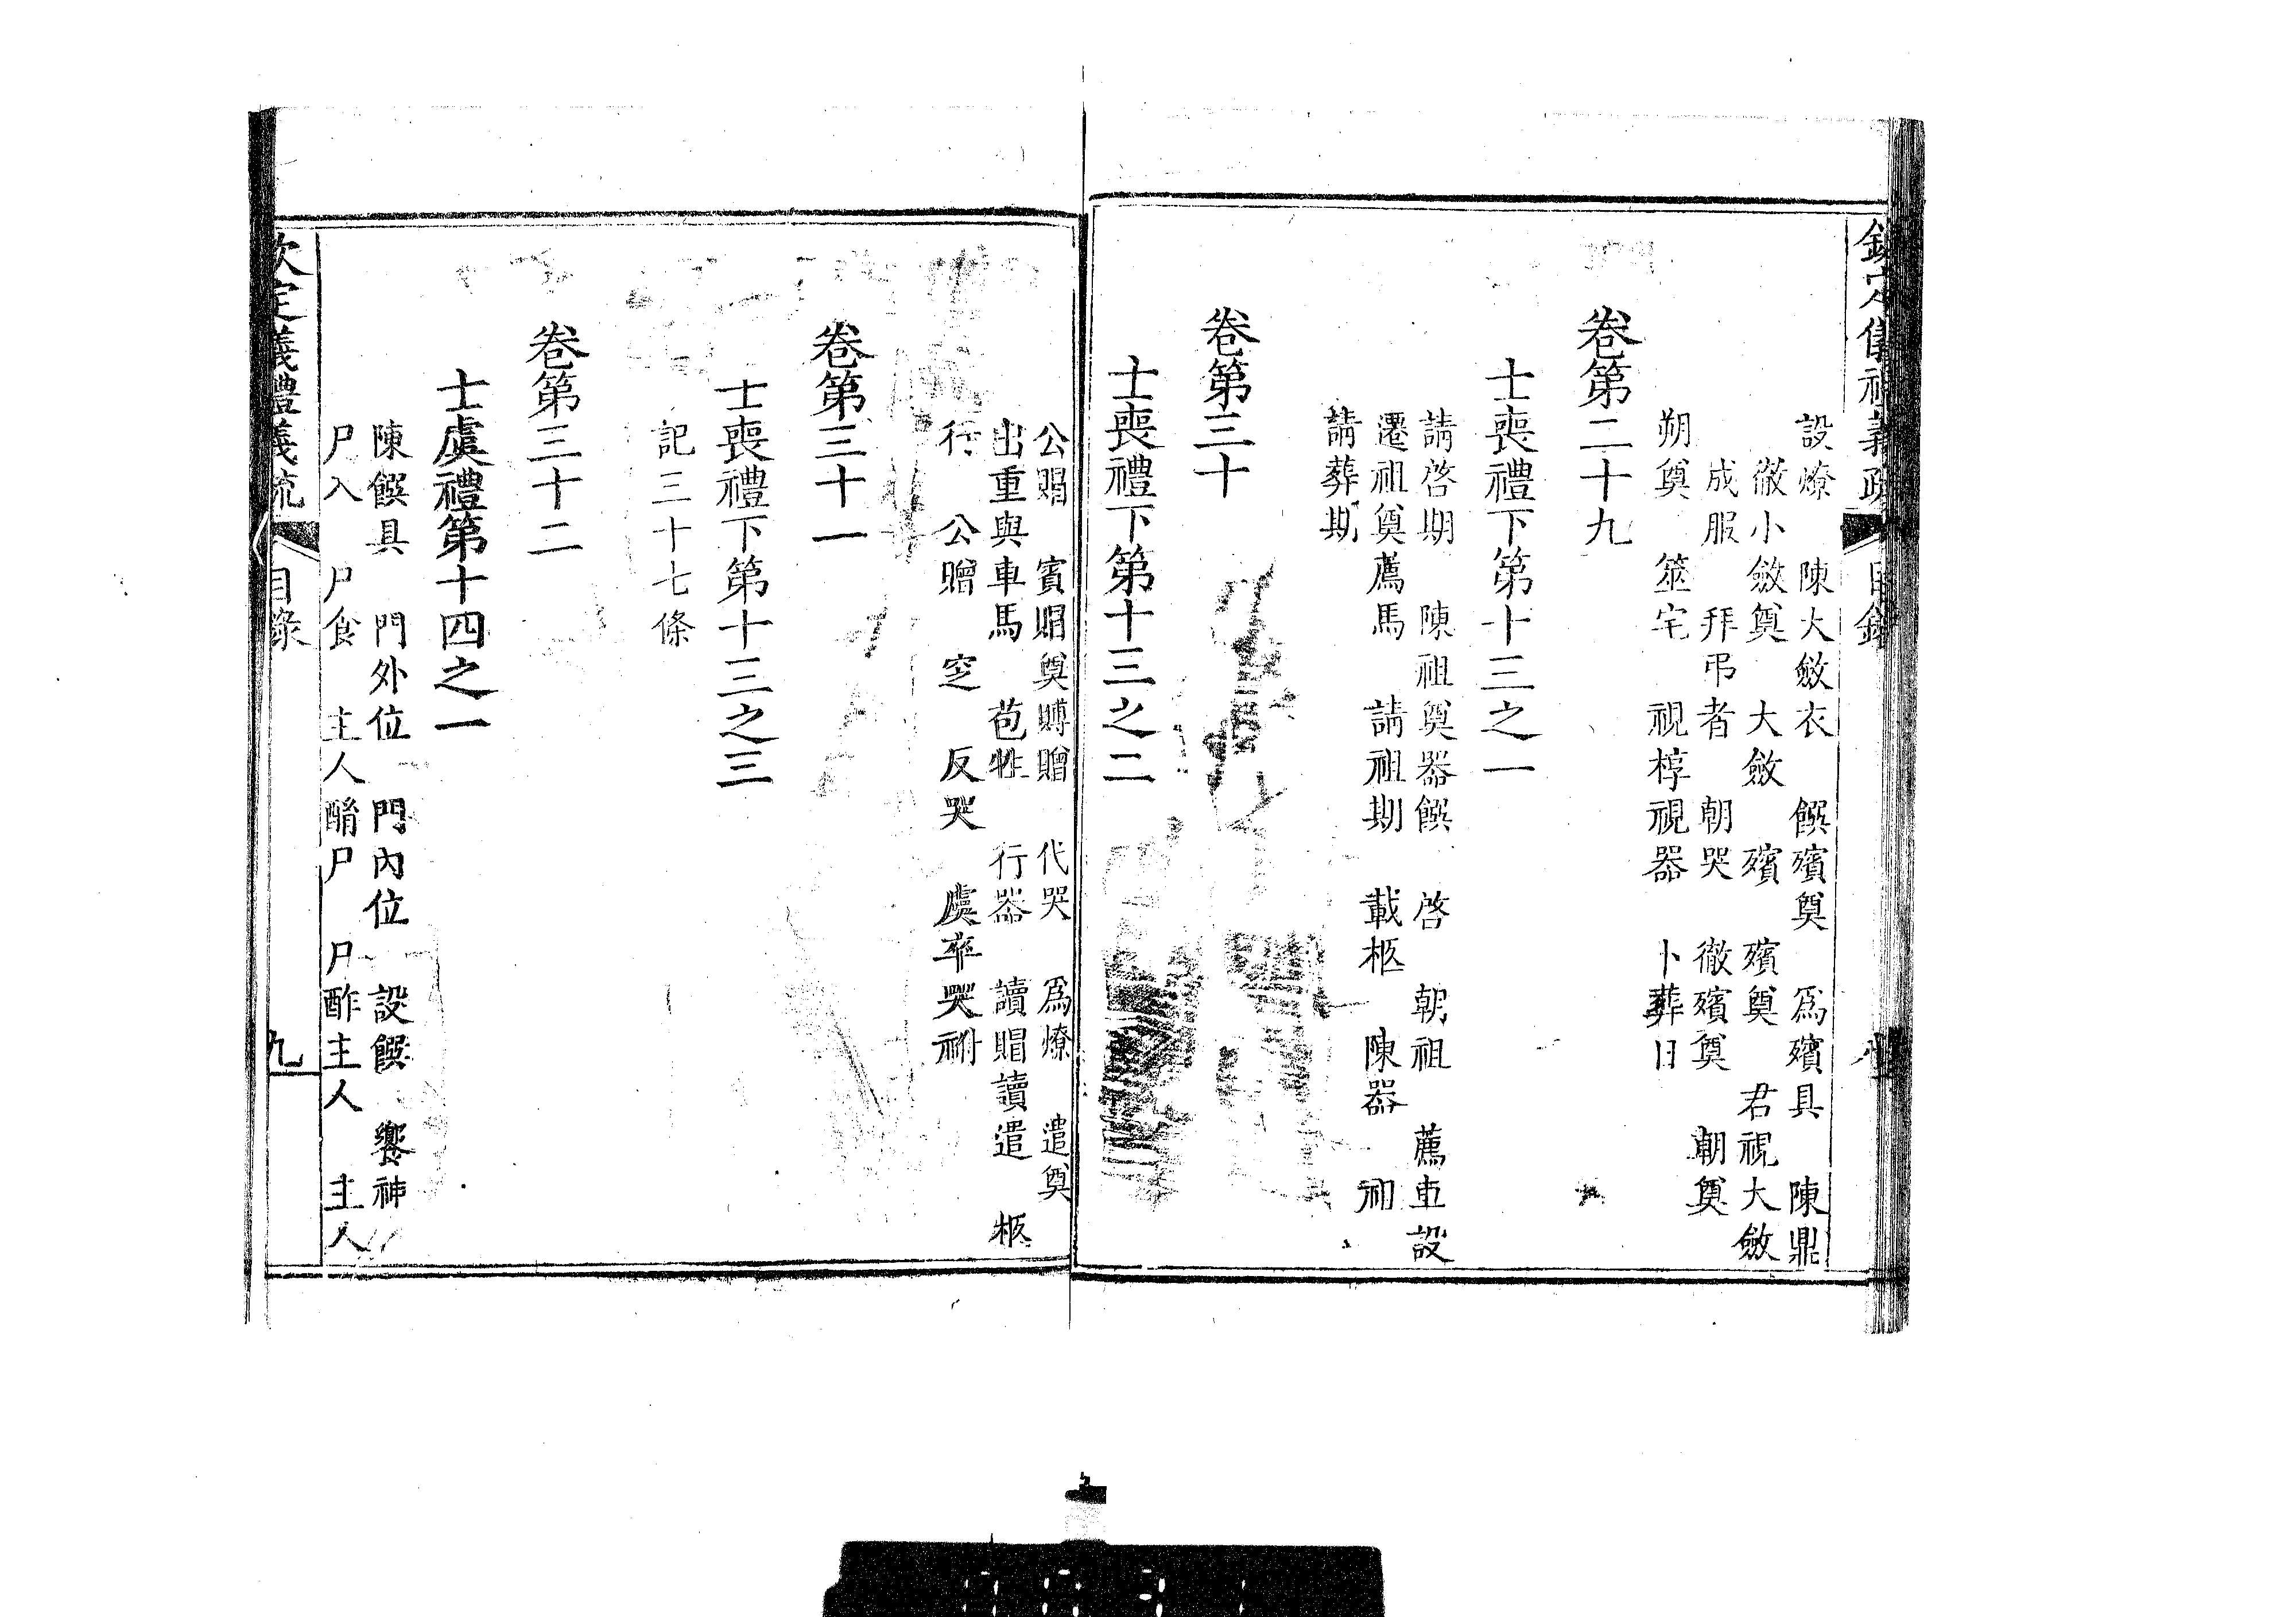 設燎　陳大斂衣　饌殯奠　爲殯具　陳鼎
徹小斂奠　大斂　殯　殯奠　君視大斂
成服　拜弔者　朝哭　徹殯奠　朝奠
朔奠　筮宅　視椁視器　卜葬日
卷第二十九
士喪禮下第十三之一
請啓期　陳祖奠器饌　啓　朝祖　薦車設
遷祖奠薦馬　請祖期　載柩　陳器　祖
請葬期
卷第三十
士喪禮下第十三之二
公賵　賓賵奠賻贈　代哭　爲燎　遣奠
出重與車馬　苞牲　行器　讀賵讀遣　柩
行　公贈　窆　反哭　虞卒哭祔
卷第三十一
士喪禮下第十三之三
記三十七條
卷第三十二
士虞禮第十四之一
陳饌具　門外位　門內位　設饌　饗神
尸入　尸食　主人酳尸　尸酢主人　主人
欽定儀禮義疏　目錄　九